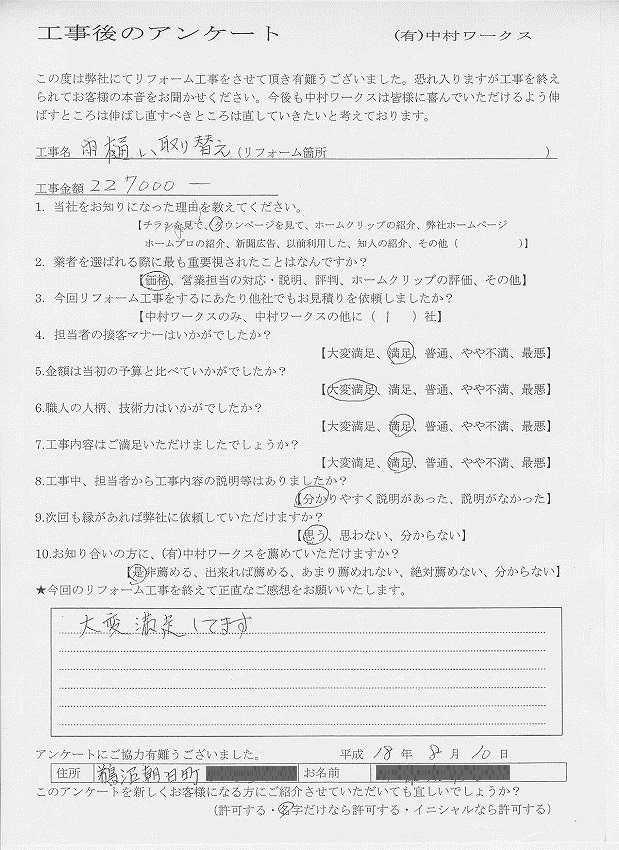 工事後のアンケート (有)中村ワークス
この度は弊社にてリフォーム工事をさせて頂き有難うございました。恐れ入りますが工事を終え
られてお客様の本音をお聞かせください。今後も中村ワークスは皆様に喜んでいただけるよう伸
ばすところは伸ばし直すべきところは直していきたいと考えております。
工事名 雨樋い取り替え (リフォーム箇所 )
工事金額 227000 ―
1. 当社をお知りになった理由を教えてください。
【チラシを見て、タウンページを見て、ホームクリップの紹介、弊社ホームページ
ホームプロの紹介、新聞広告、以前利用した、知人の紹介、その他（ ）】
2. 業者を選ばれる際に最も重要視されたことはなんですか？
【価格、営業担当の対応・説明、評判、ホームクリップの評価、その他】
3. 今回リフォーム工事をするにあたり他社でもお見積りを依頼しましたか？
【中村ワークスのみ、中村ワークスの他に（ 1 ）社】
4. 担当者の接客マナーはいかがでしたか？
【大変満足、満足、普通、やや不満、最悪】
5.金額は当初の予算と比べていかがでしたか？
【大変満足、満足、普通、やや不満、最悪】
6.職人の人柄、技術力はいかがでしたか？
【大変満足、満足、普通、やや不満、最悪】
7.工事内容はご満足いただけましたでしょうか？
【大変満足、満足、普通、やや不満、最悪】
8.工事中、担当者から工事内容の説明等はありましたか？
【分かりやすく説明があった、説明がなかった】
9.次回も縁があれば弊社に依頼していただけますか？
【思う、思わない、分からない】
10.お知り合いの方に、(有)中村ワークスを薦めていただけますか？
【是非薦める、出来れば薦める、あまり薦めれない、絶対薦めない、分からない】
★今回のリフォーム工事を終えて正直なご感想をお願いいたします。
大変満足してます
アンケートにご協力有難うございました。 平成 18 年 8 月 10 日
住所 鵜沼朝日町 お名前
このアンケートを新しくお客様になる方にご紹介させていただいても宜しいでしょうか？
（許可する・名字だけなら許可する・イニシャルなら許可する）